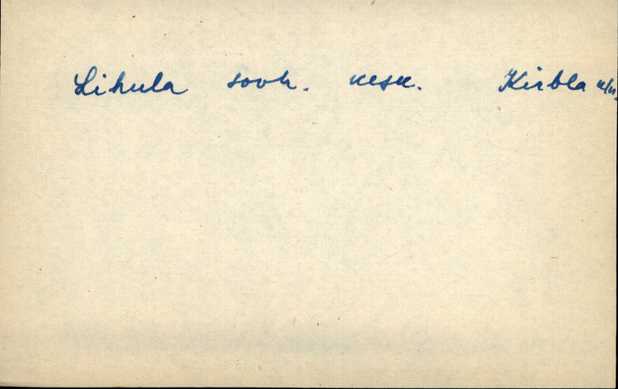 Lihula sovh. kesk. Kirbla k/n.